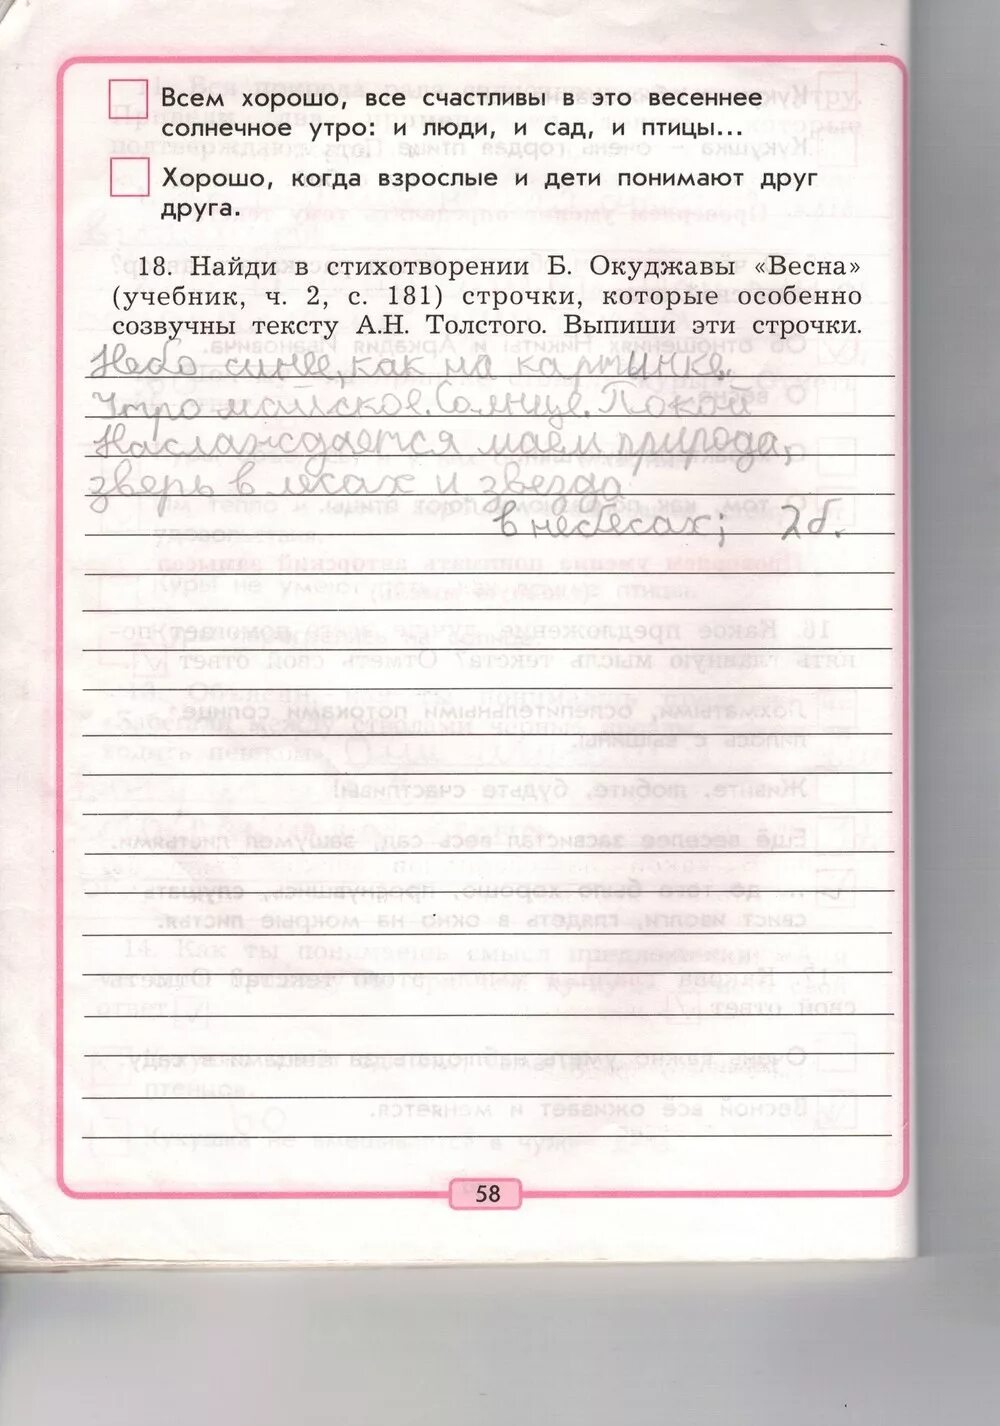 Всем хорошо, все счастливы в это весеннее
солнечное утро: и люди, и сад, и птицы...
Хорошо, когда взрослые и дети понимают друг
друга.
18. Найди в стихотворении Б. Окуджавы «Весна»
(учебник, ч. 2, с. 181) строчки, которые особенно
созвучны тексту А.Н. Толстого. Выпиши эти строчки.
Небо синее, как на картинке.
Утро майское. Солнце. Покой
Наслаждается маем природа,
зверь в лесах и звезда
в небесах; 2б.
58